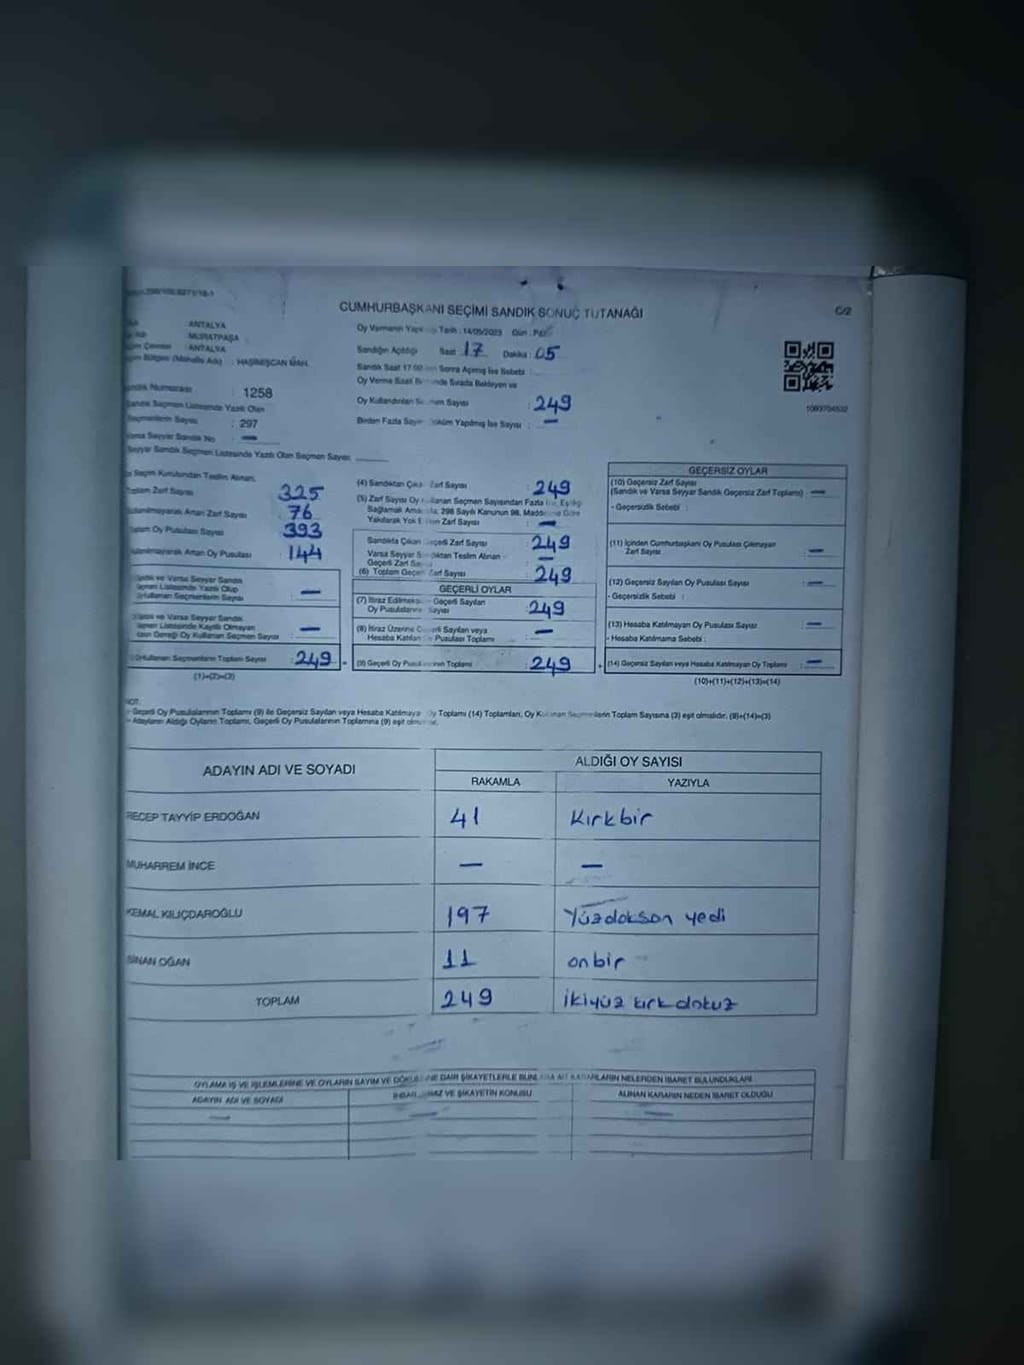 CUMHURBAŞKANI SEÇİMİ SANDIK SONUÇ TUTANAĞI
C/2
: ANTALYA
: MURATPAŞA
: ANTALYA
(Mahalle Adı) : HAŞİMİŞCAN MAH.
Numarası : 1258
Sandık Seçmen Listesinde Yazılı Olan
Seçmenlerin Sayısı : 297
Varsa Seyyar Sandık No : —
Seyyar Sandık Seçmen Listesinde Yazılı Olan Seçmen Sayısı
Oy Vermenin Tarih : 14/05/2023 Gün :
Sandığın Açıldığı Saat : 17 Dakika : 05
Sandık Saat 17:00 Sonra Açımış İse Sebebi :
Oy Verme Saati Sırada Bekleyen ve
Oy Kullandırılan Sayısı : 249
Birden Fazla Sayım Yapılmış İse Sayısı : —
1093704532
Seçim Kurulundan Teslim Alınan
Toplam Zarf Sayısı : 325
Artan Zarf Sayısı : 76
Oy Pusulası Sayısı : 393
Artan Oy Pusulası : 144
Sandık ve Varsa Seyyar Sandık
Listesinde Yazılı Olup
Oy Kullanan Seçmenlerin Sayısı : —
Sandık ve Varsa Seyyar Sandık
Listesinde Kayıtlı Olmayan
Gereği Oy Kullanan Seçmen Sayısı : —
Seçmenlerin Toplam Sayısı : 249
(1)+(2)=(3)
(4) Sandıktan Zarf Sayısı : 249
(5) Zarf Sayısı Oy Seçmen Sayısından Fazla
Sağlamak 298 Sayılı Kanunun 98. Göre
Yakılarak Yok Zarf Sayısı : —
Sandıkta Çıkan Zarf Sayısı : 249
Varsa Seyyar Teslim Alınan
Geçerli Zarf : —
(6) Toplam Zarf Sayısı : 249
GEÇERLİ OYLAR
(7) İtiraz Geçerli Sayılan
Oy Sayısı : 249
(8) İtiraz Üzerine Sayılan veya
Hesaba Katılan Pusulası Toplamı : —
(9) Geçerli Oy Toplamı : 249
GEÇERSİZ OYLAR
(10) Geçersiz Zarf Sayısı
(Sandık ve Varsa Seyyar Sandık Geçersiz Zarf Toplamı) : —
- Geçersizlik Sebebi :
(11) İçinden Cumhurbaşkanı Oy Pusulası Çıkmayan
Zarf Sayısı : —
(12) Geçersiz Sayılan Oy Pusulası Sayısı : —
- Geçersizlik Sebebi :
(13) Hesaba Katılmayan Oy Pusulası Sayısı : —
- Hesaba Katılmama Sebebi :
(14) Geçersiz Sayılan veya Hesaba Katılmayan Oy Toplamı : —
(10)+(11)+(12)+(13)=(14)
NOT:
- Geçerli Oy Pusulalarının Toplamı (9) ile Geçersiz Sayılan veya Hesaba Katılmayan Oy Toplamı (14) Toplamları, Oy Seçmenlerin Toplam Sayısına (3) eşit olmalıdır. (9)+(14)=(3)
- Adayların Aldığı Oyların Toplamı, Geçerli Oy Pusulalarının Toplamına (9) eşit
ADAYIN ADI VE SOYADI
ALDIĞI OY SAYISI
RAKAMLA YAZIYLA
RECEP TAYYİP ERDOĞAN 41 Kırkbir
MUHARREM İNCE — —
KEMAL KILIÇDAROĞLU 197 Yüzdokson yedi
SİNAN OĞAN 11 onbir
TOPLAM 249 ikiyüz kırk dokuz
OYLAMA İŞ VE İŞLEMLERİNE VE OYLARIN SAYIM VE DAİR ŞİKAYETLERLE KARARLARIN NELERDEN İBARET BULUNDUKLARI
ADAYIN ADI VE SOYADI VE ŞİKAYETİN KONUSU ALINAN KARARIN NEDEN İBARET OLDUĞU